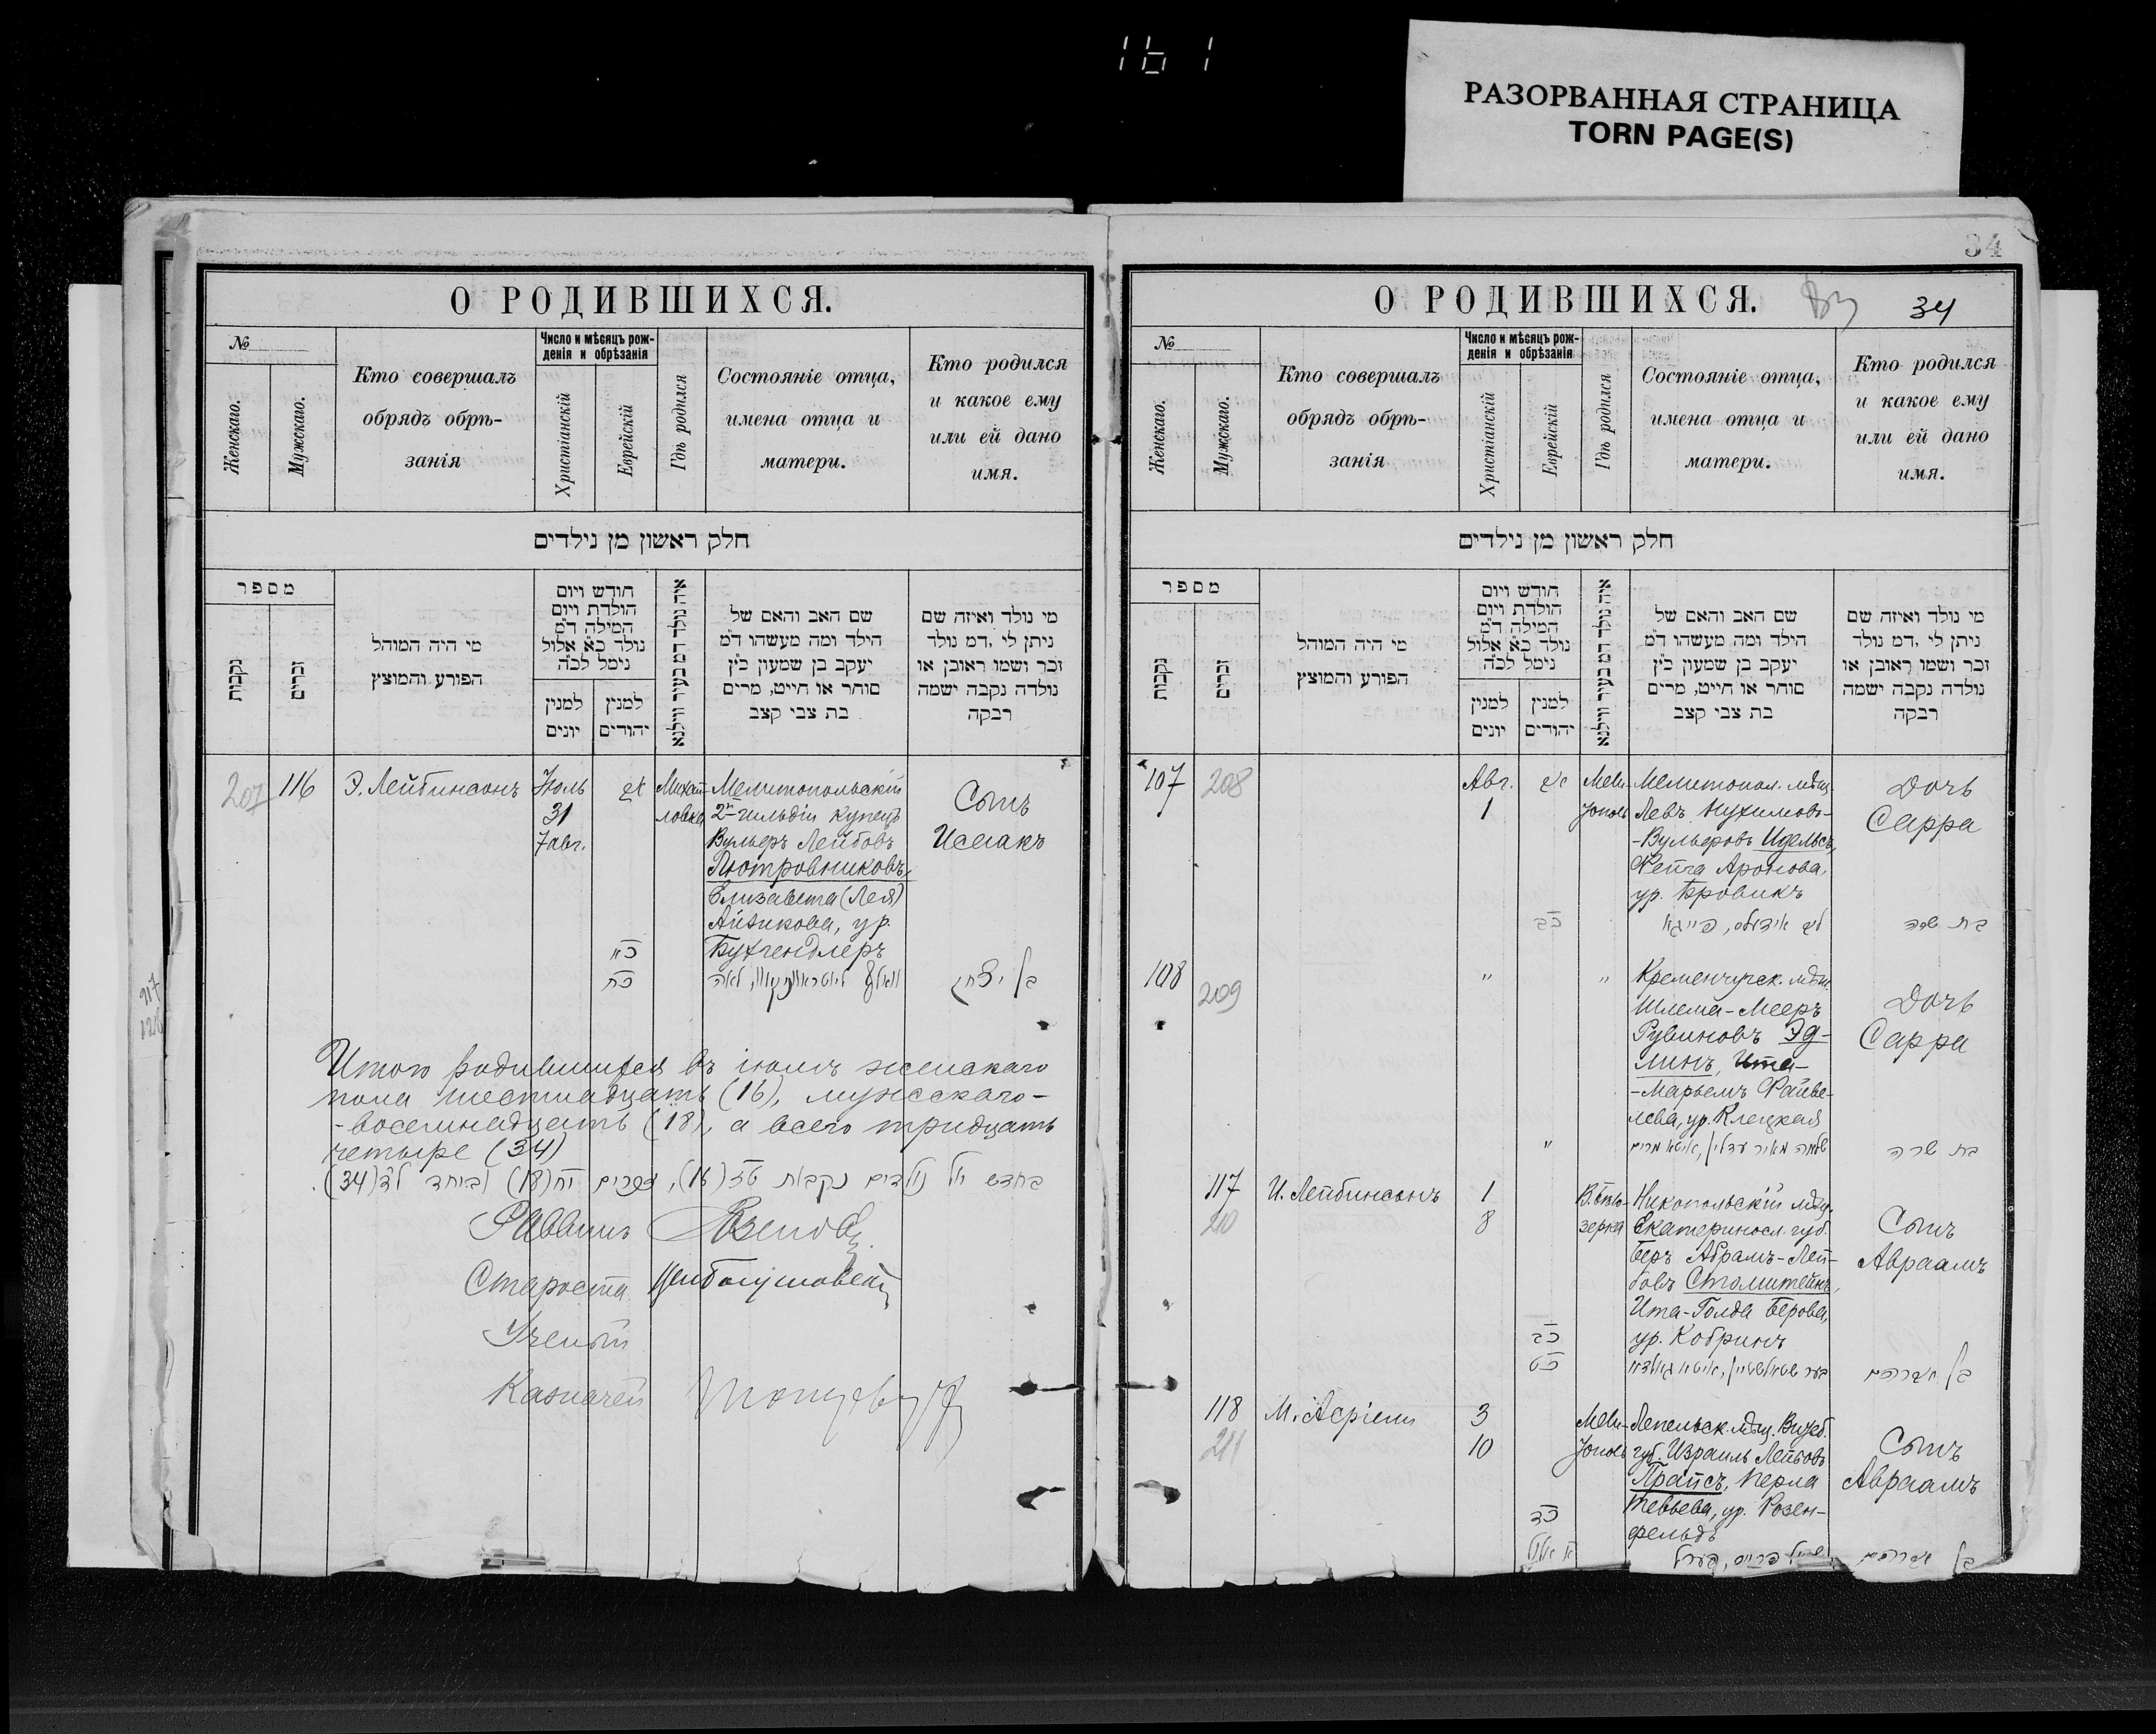 161
РАЗОРВАННАЯ СТРАНИЦА
TORN PAGE(S)
О РОДИВШИХСЯ.
№
Женскаго.
Мужскаго.
Кто совершалъ
обрядъ обрѣ-
занія
Число и мѣсяцъ рож-
денія и обрѣзанія
Христіанскій
Еврейскій
Гдѣ родился
Состояніе отца,
имена отца и
матери.
Кто родился
и какое ему
или ей дано
имя.
חלק ראשון מן נילדים
מספר
נקבות
זכרים
מי היה המוהל
הפורע והמוצץ
חודש ויום
הולדת ויום
המילה ד״מ
נולד כ״א אלול
נימל לכ״ה
למנין
יונים
למנין
יהודים
איה נולד דמ בעיר ווילנא
שם האב והאם של
הילד ומה מעשהו ד״מ
יעקב בן שמעון כ״ץ
סוחר או חייט, מרים
בת צבי קצב
מי נולד ואיזה שם
ניתן לי ,דמ נולד
זכר ושמו ראובן או
נולדה נקבה ישמה
רבקה
207
116
Э. Лейбинсонъ
Іюль
31
7 авг.
אב
כא
כח
Михай-
ловка
Мелитопольскій
2й гильдіи купецъ
Вульфъ Лейбовъ
Лютровниковъ,
Елизавета (Лея)
Айзикова, ур.
Бухгендлеръ
Сынъ
Исаакъ
בן יצחק
Итого родившихся въ іюлѣ женскаго
пола шестнадцать (16), мужскаго-
-восемнадцать (18), а всего тридцать
четыре (34)
בחדש יולי נולדים נקבות טז (16), זכרים יח (18) וביחד לד (34).
Раввинъ
Староста
Ученый
Казначей
34
О РОДИВШИХСЯ.
34
№
Женскаго.
Мужскаго.
Кто совершалъ
обрядъ обрѣ-
занія
Число и мѣсяцъ рож-
денія и обрѣзанія
Христіанскій
Еврейскій
Гдѣ родился
Состояніе отца,
имена отца и
матери.
Кто родился
и какое ему
или ей дано
имя.
חלק ראשון מן נילדים
מספר
נקבות
זכרים
מי היה המוהל
הפורע והמוצץ
חודש ויום
הולדת ויום
המילה ד״מ
נולד כ״א אלול
נימל לכ״ה
למנין
יונים
למנין
יהודים
איה נולד דמ בעיר ווילנא
שם האב והאם של
הילד ומה מעשהו ד״מ
יעקב בן שמעון כ״ץ
סוחר או חייט, מרים
בת צבי קצב
מי נולד ואיזה שם
ניתן לי ,דמ נולד
זכר ושמו ראובן או
נולדה נקבה ישמה
רבקה
107
208
Авг.
1
אב
כב
Мели-
тополь
Мелитопол. мѣщ.
Левъ Нухимовъ-
-Вульфовъ Идельсъ,
Фейга Аронова,
ур. Бровикъ
Дочь
Сарра
בת שרה
108
209
"
"
"
Кременчугск. мѣщ.
Шлема-Мееръ
Рувиновъ Эд-
линъ, Ита-
-Марьемъ Файве-
лева, ур. Клецкая
שלמה מאיר עדלין, איטא מרים
Дочь
Сарра
בת שרה
117
210
И. Лейбинсонъ
1
8
כב
כט
В. Бѣло-
зерка
Никопольскій мѣщ.
Екатеринosл. губ.
Беръ Абрамъ-Лей-
бовъ Столштейнъ,
Ита-Голда Берова,
ур. Кобринъ
Сынъ
Авраамъ
בן אברהם
118
211
3
10
כד
א אלול
Мели-
тополь
Лепельск. мѣщ. Витеб.
губ. Израиль Лейбовъ
Прайсъ, Перла
Тевьева, ур. Розен-
фельдъ
Сынъ
Авраамъ
בן אברהם